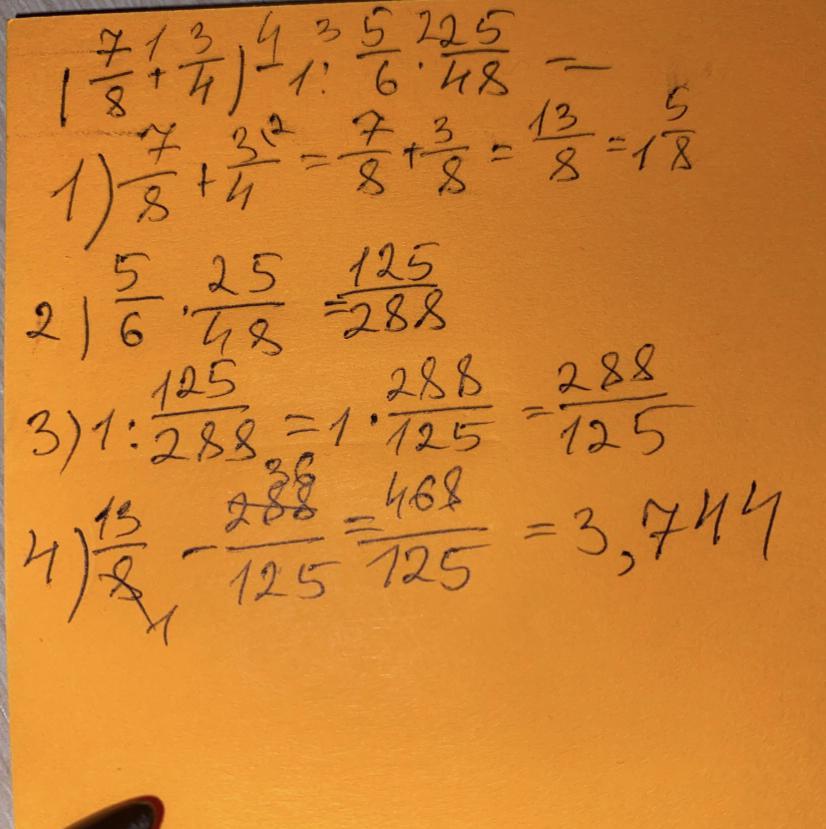 (7/8 + 3/4) - 1 : 5/6 · 25/48 =
1) 7/8 + 3/4 = 7/8 + 3/8 = 13/8 = 1 5/8
2) 5/6 · 25/48 = 125/288
3) 1 : 125/288 = 1 · 288/125 = 288/125
4) 13/8 - 288/125 = 468/125 = 3,744